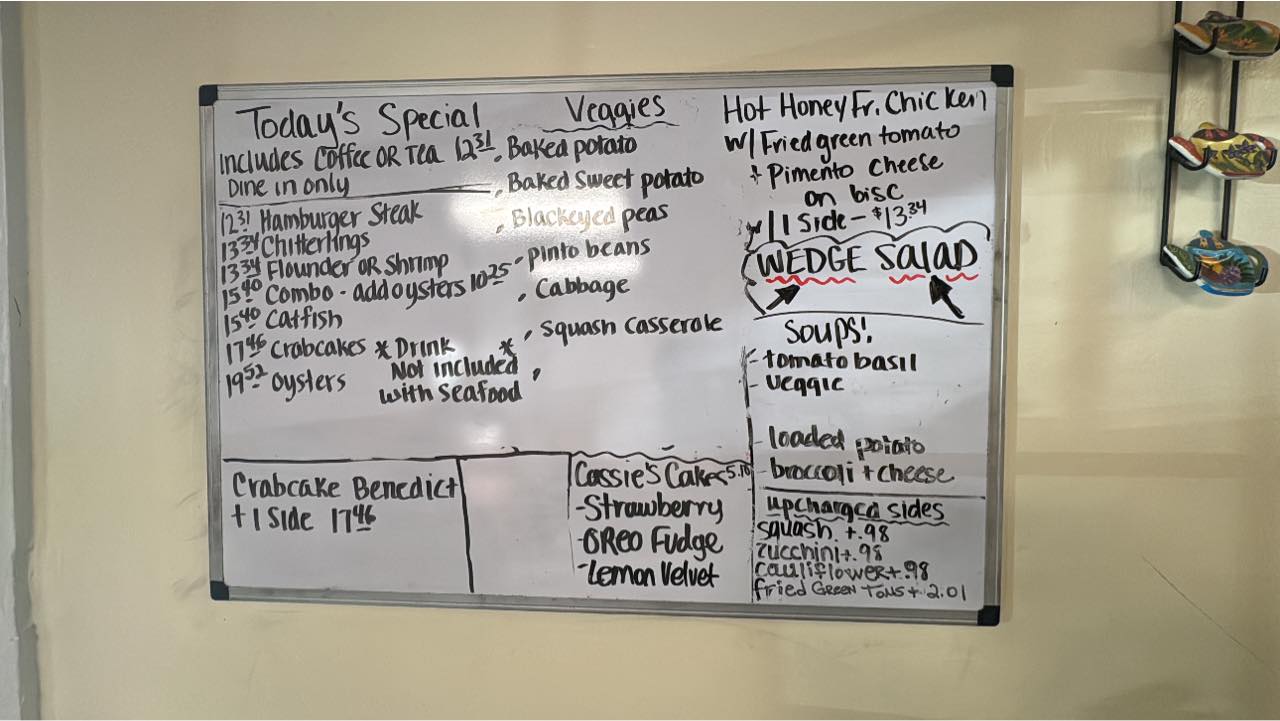 Today's Special
Includes Coffee OR Tea 12.31
Dine in only
12.31 Hamburger Steak
13.34 Chitterlings
13.34 Flounder OR Shrimp
15.40 Combo - add oysters 10.25
15.40 Catfish
17.46 Crabcakes
19.52 oysters
* Drink *
Not included
with Seafood
Veggies
, Baked potato
, Baked Sweet potato
, Blackeyed peas
- pinto beans
, Cabbage
, Squash Casserole
,
Hot Honey Fr. Chicken
w/ Fried green tomato
+ Pimento Cheese
on bisc
w/ 1 Side - $13.34
WEDGE SALAD
Soups!
- tomato basil
- veggie
- loaded potato
- broccoli + cheese
upcharged sides
squash +.98
zucchini +.98
cauliflower +.98
fried GREEN Toms + 2.01
Crabcake Benedict
+ 1 Side 17.46
Cassie's Cakes 5.10
- Strawberry
- OREO Fudge
- Lemon Velvet